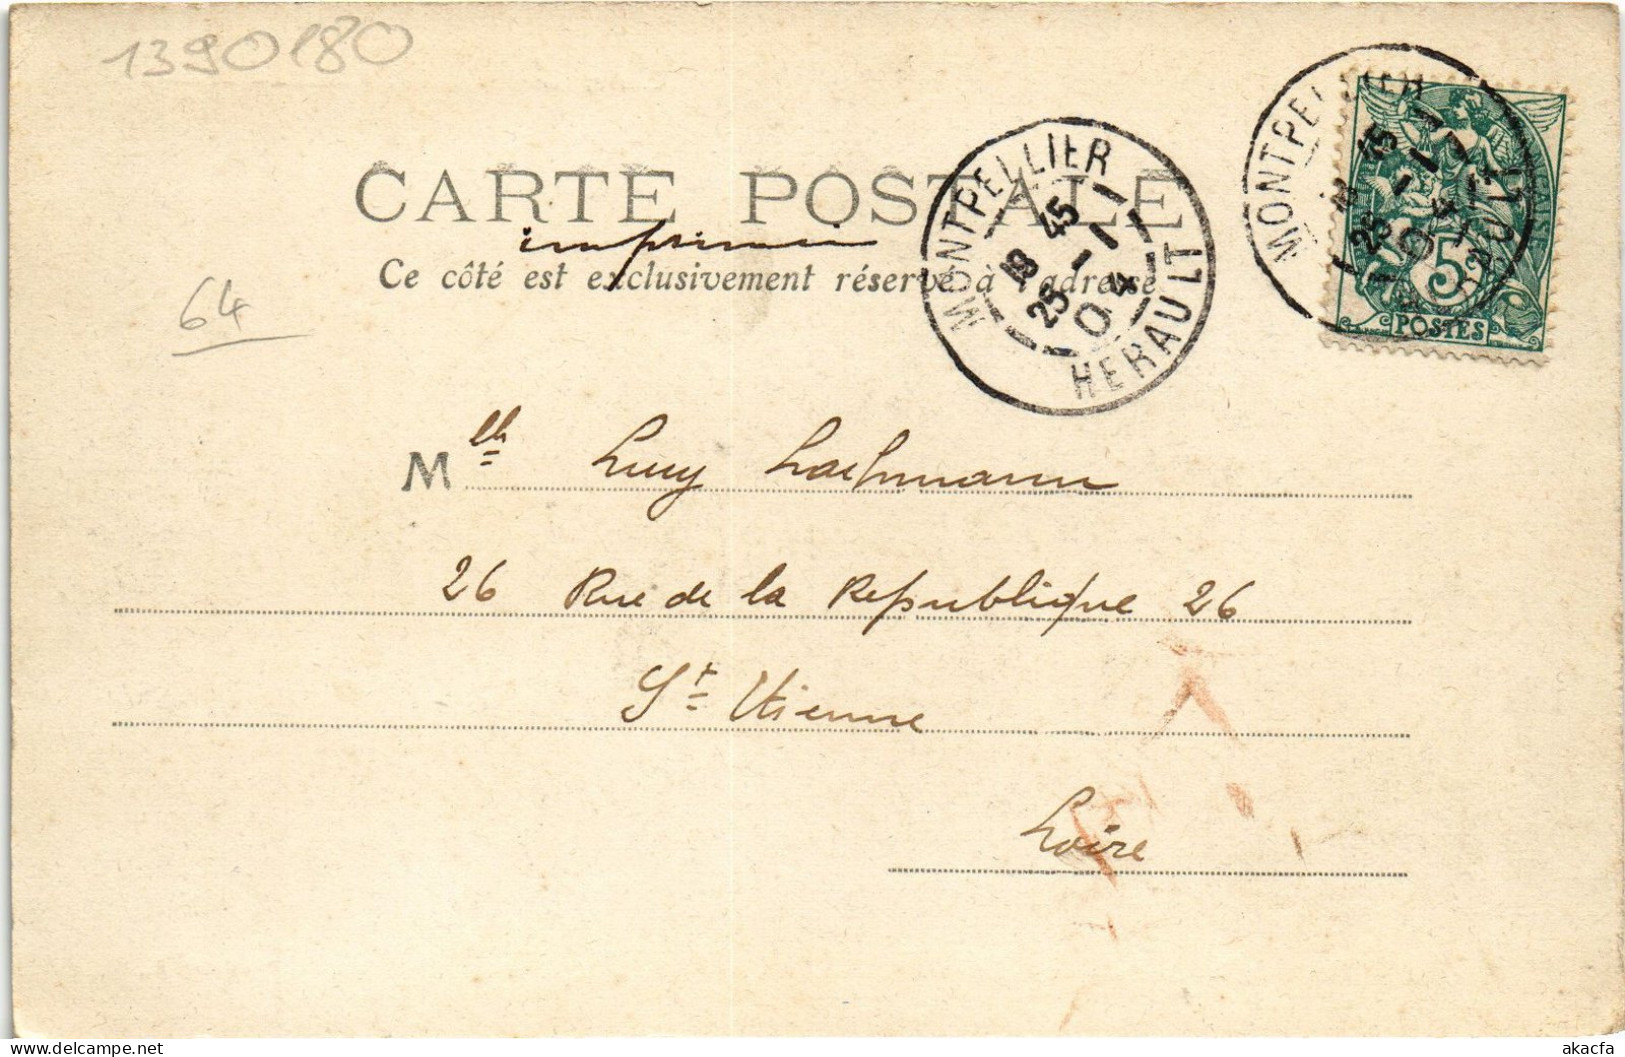 1390180
CARTE POSTALE
imprimé
Ce côté est exclusivement réservé à l'adresse
MONTPELLIER
18 45
25 -1
04
HERAULT
MONTPELLIER
18 45
25 -1
04
HERAULT
5
POSTES
64
Mlle Lucy Lachmann
26 Rue de la République 26
St Etienne
Loire
akacfa